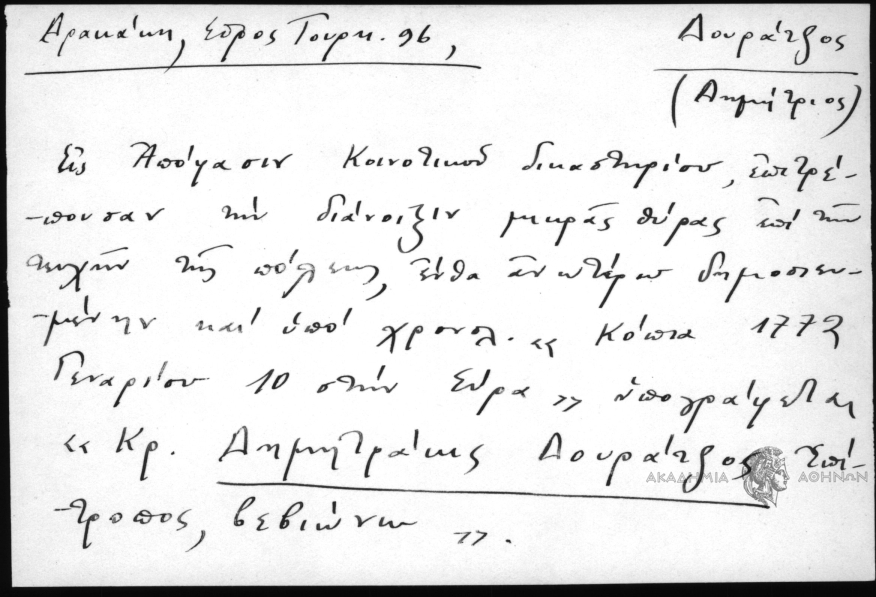 Δρακάκη, Σύρος Τουρκ. 96,
Δουράτζος
(Δημήτριος)
Εἰς Ἀπόφασιν Κοινοτικοῦ δικαστηρίου, ἐπιτρέ-
-πουσαν τὴν διάνοιξιν μικρᾶς θύρας ἐπὶ τῶν
τειχῶν τῆς πόλεως, ἔνθα ἀνωτέρω δημοσιευ-
-μένην καὶ ὑπὸ χρονολ. «Κόπια 1772
Γεναρίου 10 στὴν Σύρα» ὑπογράφεται
«Κρ. Δημητράκις Δουράτζος Ἐπί-
-τροπος, βεβιώνω».
ΑΚΑΔΗΜΙΑ ΑΘΗΝΩΝ